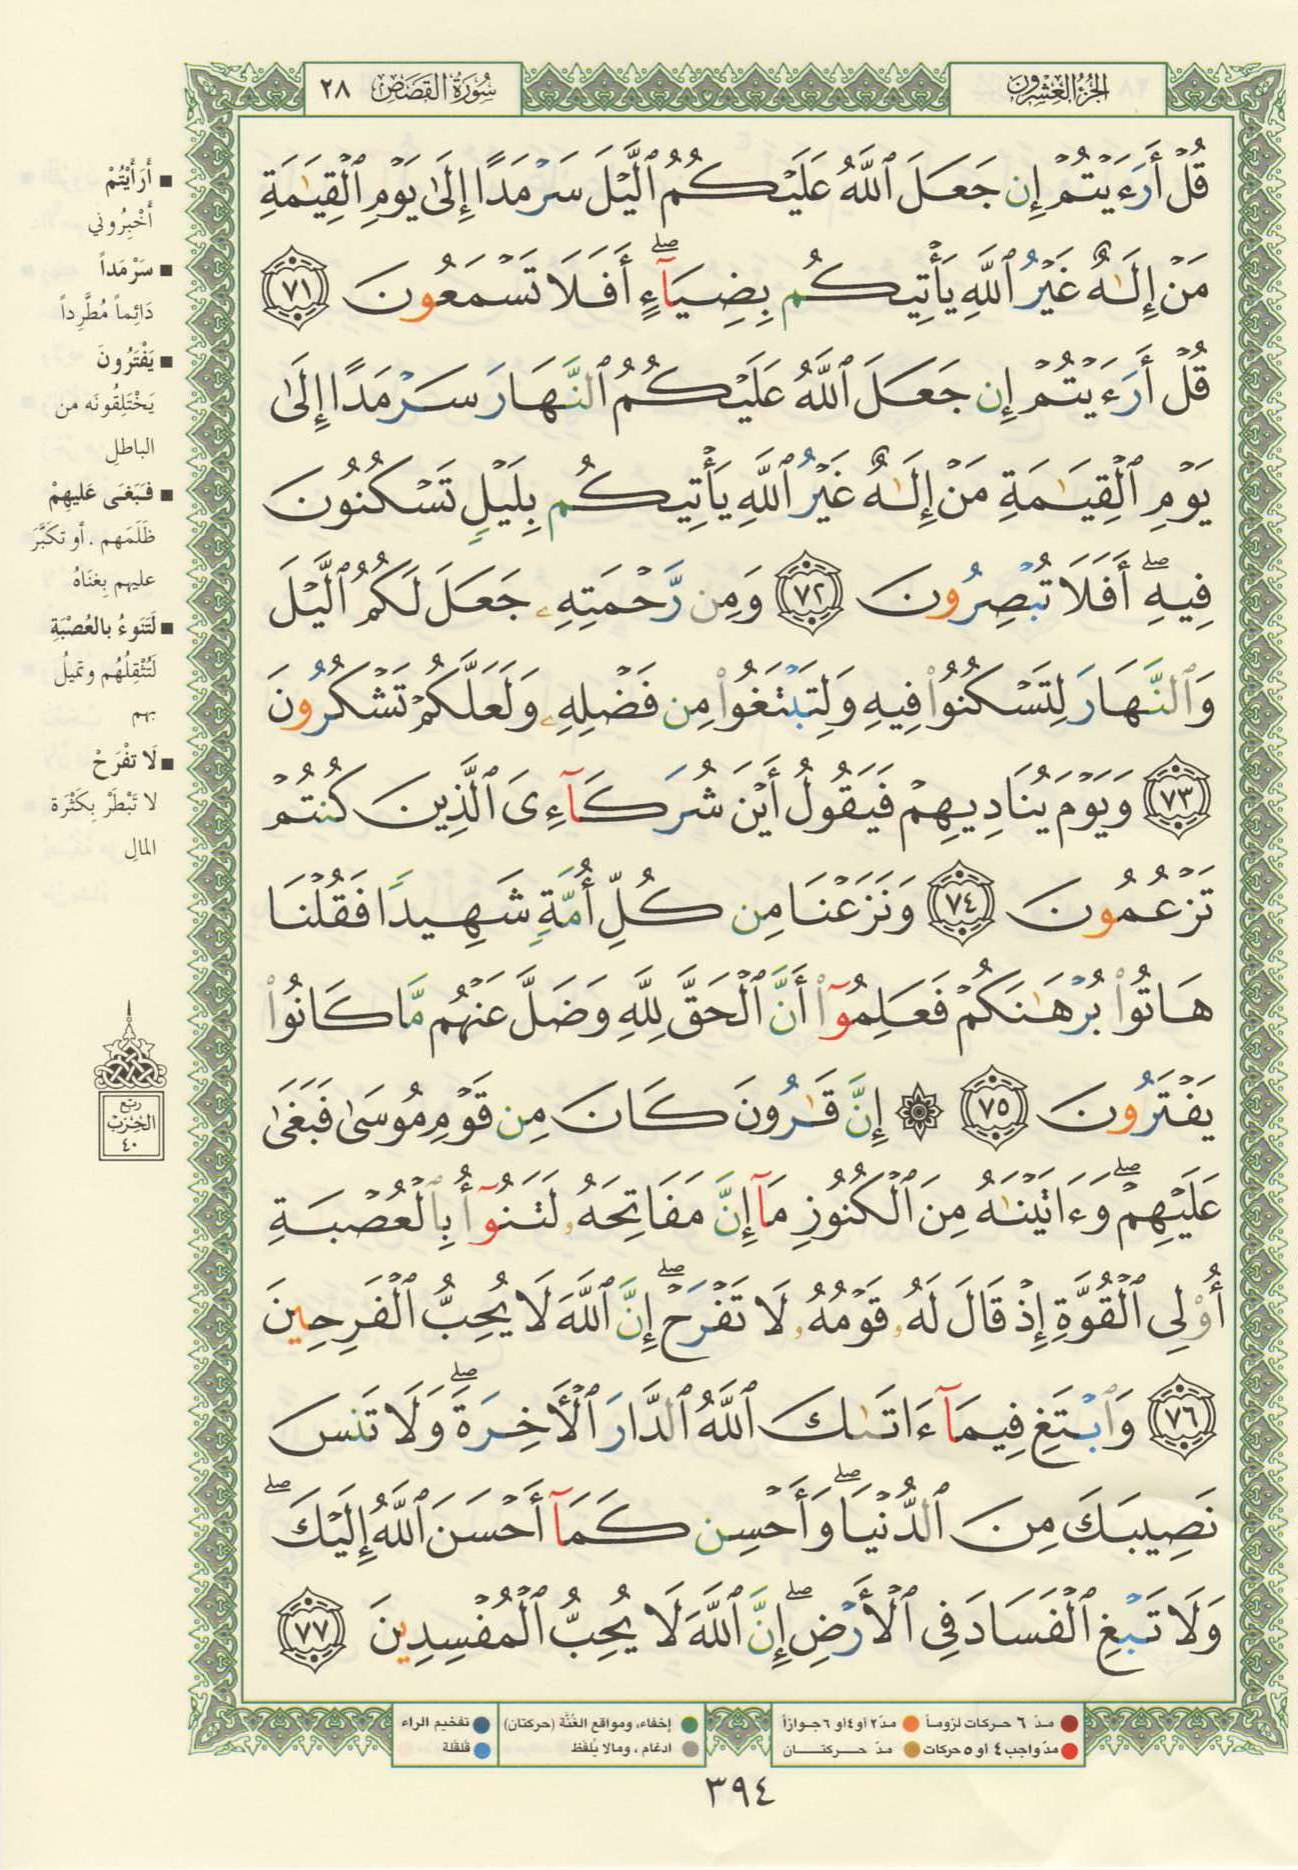 الجزء العشرون
سورة القصص ٢٨
قُلْ أَرَءَيْتُمْ إِن جَعَلَ ٱللَّهُ عَلَيْكُمُ ٱلَّيْلَ سَرْمَدًا إِلَىٰ يَوْمِ ٱلْقِيَٰمَةِ
مَنْ إِلَٰهٌ غَيْرُ ٱللَّهِ يَأْتِيكُم بِضِيَآءٍ ۖ أَفَلَا تَسْمَعُونَ ٧١
قُلْ أَرَءَيْتُمْ إِن جَعَلَ ٱللَّهُ عَلَيْكُمُ ٱلنَّهَارَ سَرْمَدًا إِلَىٰ
يَوْمِ ٱلْقِيَٰمَةِ مَنْ إِلَٰهٌ غَيْرُ ٱللَّهِ يَأْتِيكُم بِلَيْلٍ تَسْكُنُونَ
فِيهِ ۖ أَفَلَا تُبْصِرُونَ ٧٢ وَمِن رَّحْمَتِهِۦ جَعَلَ لَكُمُ ٱلَّيْلَ
وَٱلنَّهَارَ لِتَسْكُنُوا۟ فِيهِ وَلِتَبْتَغُوا۟ مِن فَضْلِهِۦ وَلَعَلَّكُمْ تَشْكُرُونَ
٧٣ وَيَوْمَ يُنَادِيهِمْ فَيَقُولُ أَيْنَ شُرَكَآءِىَ ٱلَّذِينَ كُنتُمْ
تَزْعُمُونَ ٧٤ وَنَزَعْنَا مِن كُلِّ أُمَّةٍ شَهِيدًا فَقُلْنَا
هَاتُوا۟ بُرْهَٰنَكُمْ فَعَلِمُوٓا۟ أَنَّ ٱلْحَقَّ لِلَّهِ وَضَلَّ عَنْهُم مَّا كَانُوا۟
يَفْتَرُونَ ٧٥ ۞ إِنَّ قَٰرُونَ كَانَ مِن قَوْمِ مُوسَىٰ فَبَغَىٰ
عَلَيْهِمْ ۖ وَءَاتَيْنَٰهُ مِنَ ٱلْكُنُوزِ مَآ إِنَّ مَفَاتِحَهُۥ لَتَنُوٓأُ بِٱلْعُصْبَةِ
أُو۟لِى ٱلْقُوَّةِ إِذْ قَالَ لَهُۥ قَوْمُهُۥ لَا تَفْرَحْ ۖ إِنَّ ٱللَّهَ لَا يُحِبُّ ٱلْفَرِحِينَ
٧٦ وَٱبْتَغِ فِيمَآ ءَاتَىٰكَ ٱللَّهُ ٱلدَّارَ ٱلْأَخِرَةَ ۖ وَلَا تَنسَ
نَصِيبَكَ مِنَ ٱلدُّنْيَا ۖ وَأَحْسِن كَمَآ أَحْسَنَ ٱللَّهُ إِلَيْكَ ۖ
وَلَا تَبْغِ ٱلْفَسَادَ فِى ٱلْأَرْضِ ۖ إِنَّ ٱللَّهَ لَا يُحِبُّ ٱلْمُفْسِدِينَ ٧٧
■ أَرَأَيْتُمْ
أَخْبِرُوني
■ سَرْمَداً
دَائِماً مُطَّرِداً
■ يَفْتَرُونَ
يَخْتَلِقُونَه من
الباطلِ
■ فَبَغَى عَليهِمْ
ظَلَمَهم . أو تكَبَّرَ
عليهم بِغنَاهُ
■ لَتَنوءُ بالعُصْبَةِ
لَتُثْقِلُهُم وتميلُ
بهم
■ لَا تفْرَحْ
لا تَبْطَرْ بِكَثْرَة
المالِ
ربع
الحزب
٤٠
مدّ ٦ حركات لزوماً مدّ٢ أو٤ أو ٦ جوازاً
مدّ واجب ٤ أو ٥ حركات مدّ حركتان
إخفاء، ومواقع الغُنَّة (حركتان) تفخيم الراء
ادغام ، ومالا يُلفَظ قلقلة
٣٩٤